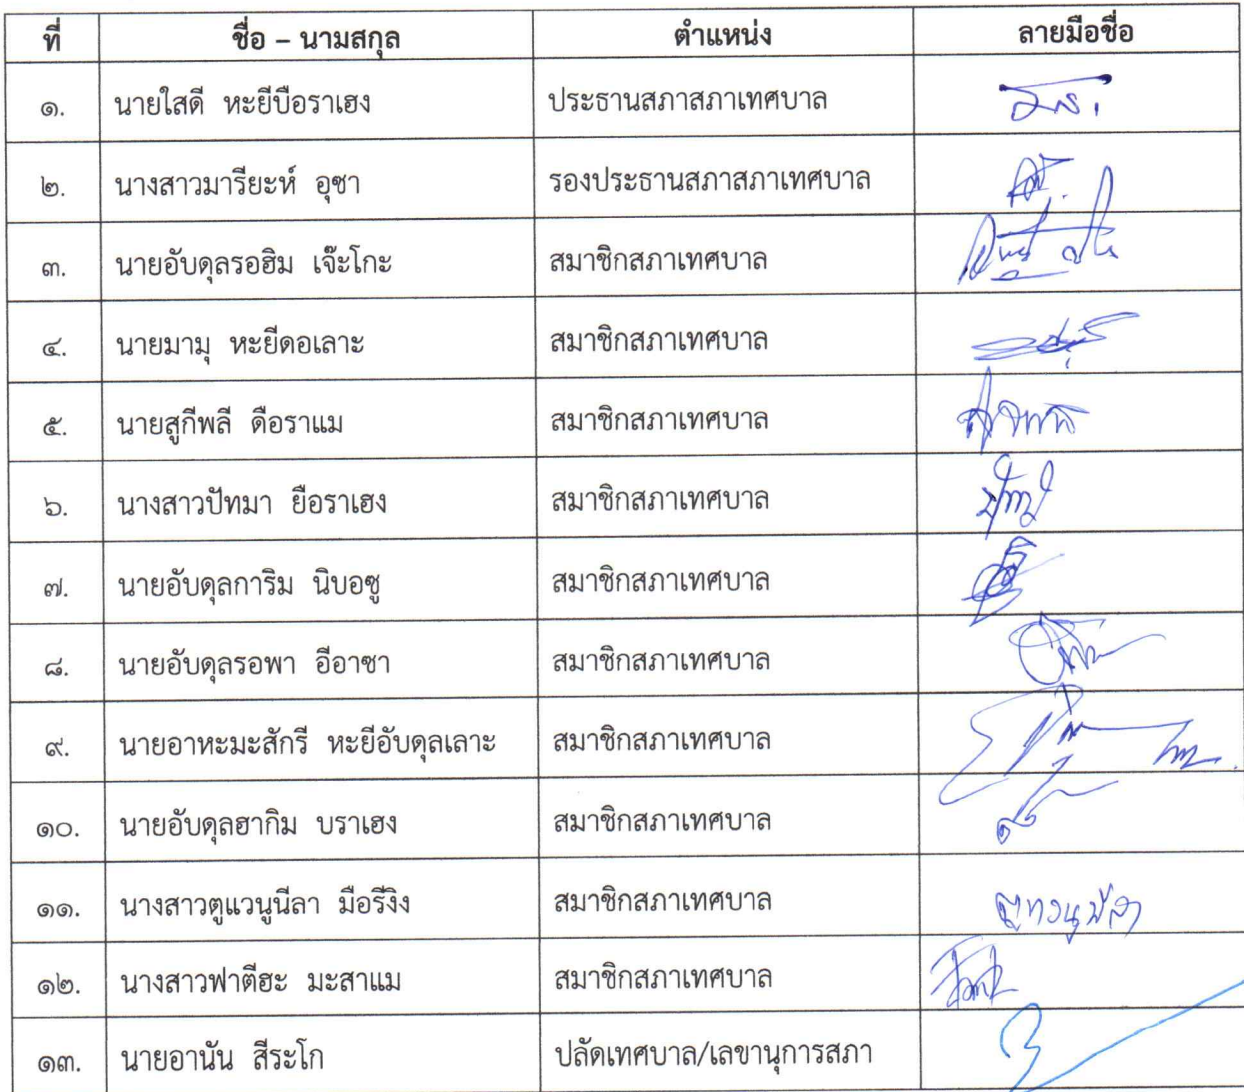 ที่ ชื่อ – นามสกุล ตำแหน่ง ลายมือชื่อ
๑. นายใสดี หะยีบือราเฮง ประธานสภาสภาเทศบาล
๒. นางสาวมารียะห์ อุซา รองประธานสภาสภาเทศบาล
๓. นายอับดุลรอฮิม เจ๊ะโกะ สมาชิกสภาเทศบาล
๔. นายมามุ หะยีดอเลาะ สมาชิกสภาเทศบาล
๕. นายสูกีพลี ดือราแม สมาชิกสภาเทศบาล
๖. นางสาวปัทมา ยือราเฮง สมาชิกสภาเทศบาล
๗. นายอับดุลการิม นิบอซู สมาชิกสภาเทศบาล
๘. นายอับดุลรอพา อีอาซา สมาชิกสภาเทศบาล
๙. นายอาหะมะสักรี หะยีอับดุลเลาะ สมาชิกสภาเทศบาล
๑๐. นายอับดุลฮากิม บราเฮง สมาชิกสภาเทศบาล
๑๑. นางสาวตูแวนูนีลา มือรีงิง สมาชิกสภาเทศบาล
๑๒. นางสาวฟาตีฮะ มะสาแม สมาชิกสภาเทศบาล
๑๓. นายอานัน สีระโก ปลัดเทศบาล/เลขานุการสภา